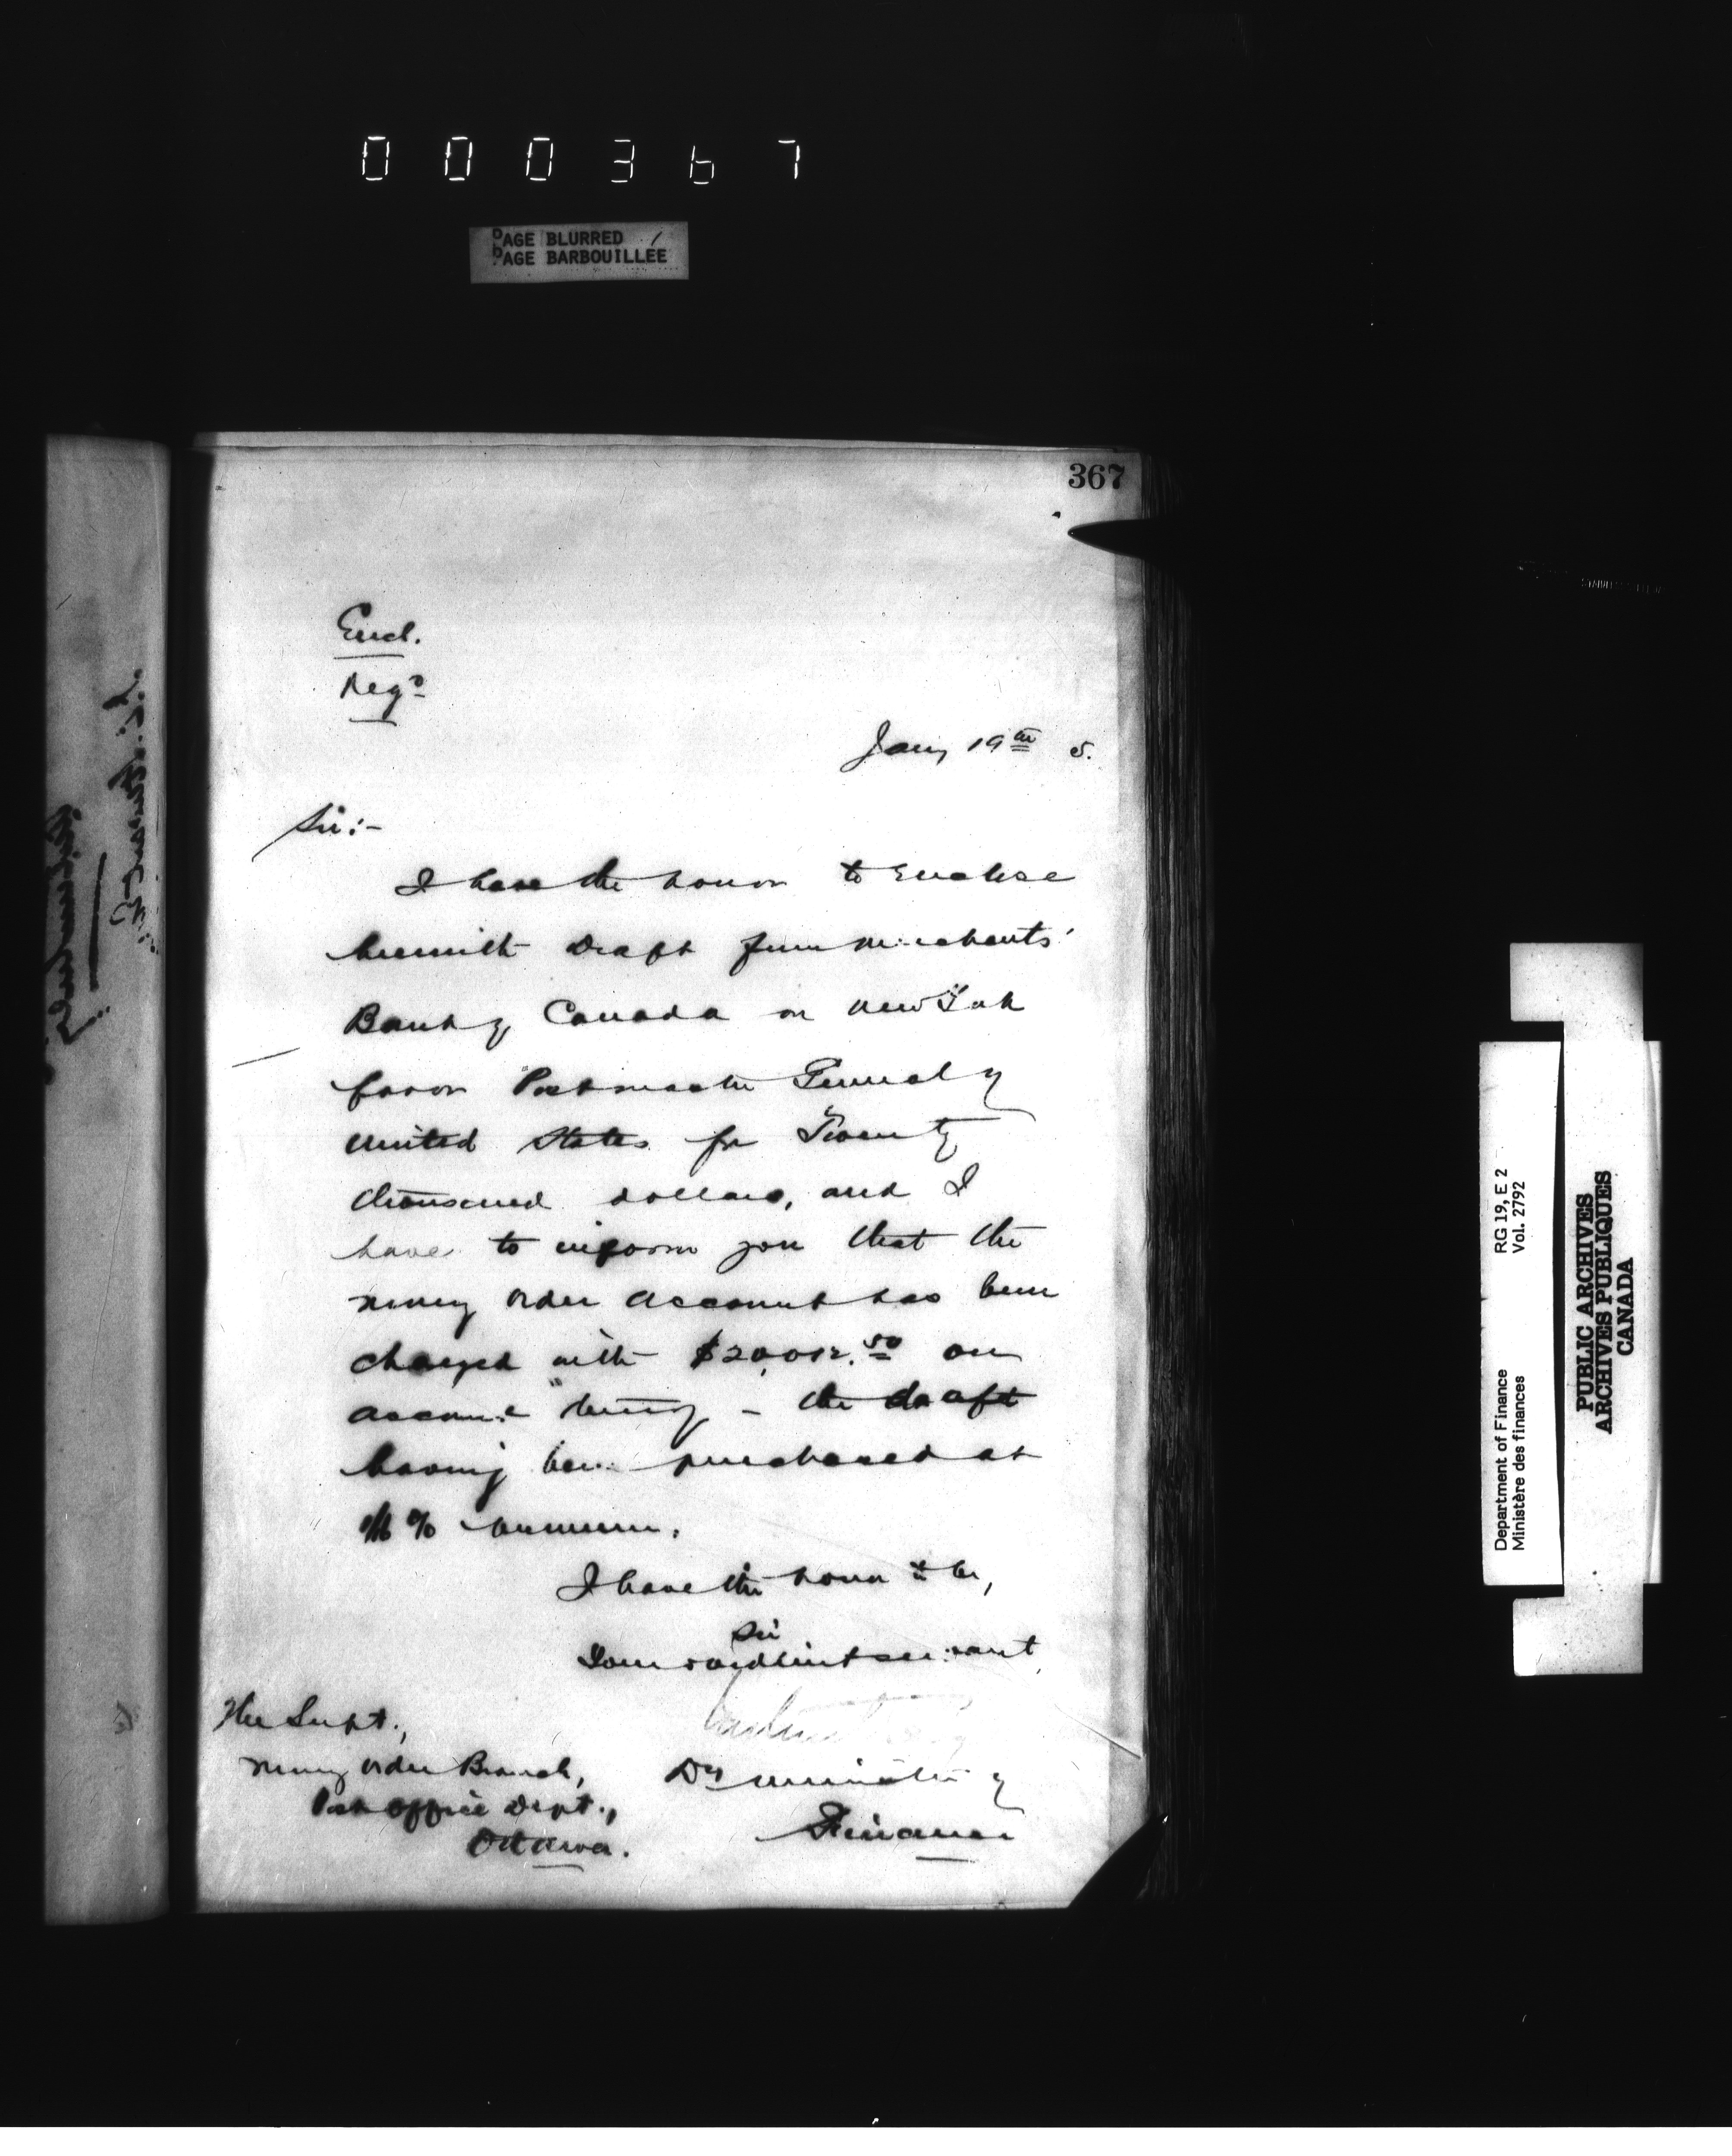 000367
PAGE BLURRED
PAGE BARBOUILLÉE
367
Encl.
Regd
Jany 19th 5.
Sir:-
I have the honor to enclose
herewith Draft from Merchants'
Bank of Canada on New York
favor Postmaster General of
United States for Twenty
thousand dollars, and I
have to inform you that the
money order account has been
charged with $20,012.50 on
account thereof - the draft
having been purchased at
1/16 % premium.
I have the honor to be,
Sir
Your obedient servant
The Supt.,
Money Order Branch,
Post Office Dept.,
Ottawa.
Dy Minister of
Finance
Department of Finance
Ministère des finances
RG 19, E 2
Vol. 2792
PUBLIC ARCHIVES
ARCHIVES PUBLIQUES
CANADA